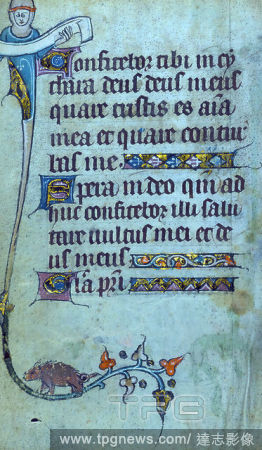 Confitebor tibi in cy
thara deus deus meus
quare tristis es aīa
mea et quare contur
bas me.
Spera in deo qm̄ ad
huc confitebor illi salu
tare vultus mei et de
us meus.
Gl̄a pr̄i.
TPG
www.tpgnews.com/ 達志影像